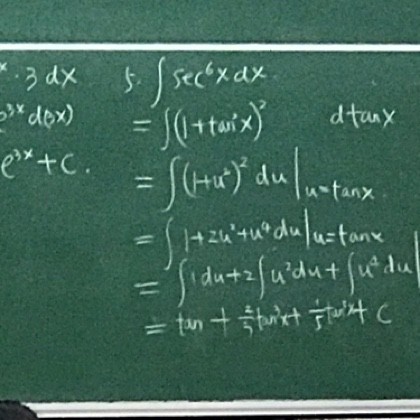 x · 3 dx
e^3x d(3x)
e^3x + C.
5. ∫ sec⁶x dx
= ∫(1+tan²x)² dtanx
= ∫(1+u²)² du |u=tanx.
= ∫ 1+2u²+u⁴ du |u=tanx
= ∫ 1 du + 2∫ u² du + ∫ u⁴ du |
= tan + 2/3 tan³x + 1/5 tan⁵x + C